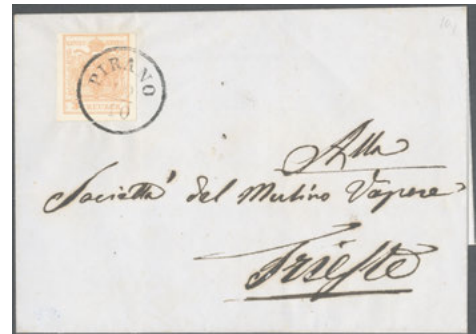 PIRANO
10
Alla
Società del Mulino Vapore
Trieste